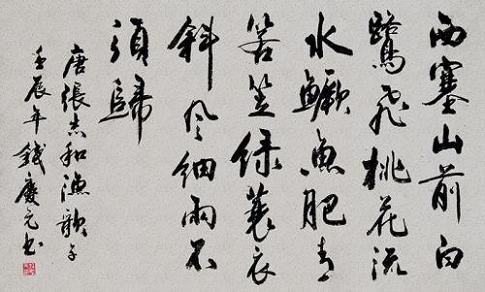 西塞山前白
鷺飛桃花流
水鱖魚肥青
箬笠绿蓑衣
斜风细雨不
須歸
唐張志和漁歌子
壬辰年錢慶元书